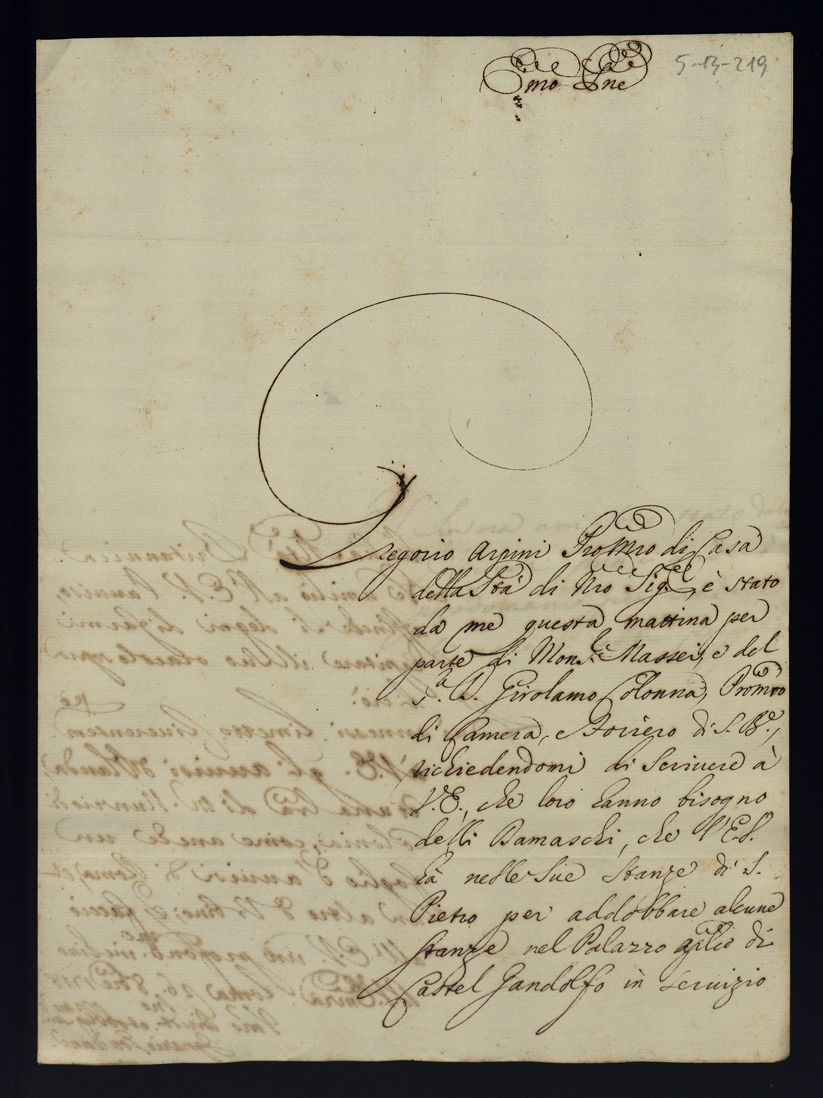 Emo Pne
5-13-219
Gregorio Arpini Promro di Casa
della Stà di Nro Sigre, è stato
da me questa mattina per
parte di Monsr Massei, e del
Sr D. Girolamo Colonna, Promro
di Camera, e Foriero di S. Bne,
richiedendomi di scrivere à
V.E., che loro hanno bisogno
delli Damaschi, che l'E.V.
hà nelle Sue Stanze di S.
Pietro per addobbare alcune
Stanze nel Palazzo aplico di
Castel Gandolfo in servizio